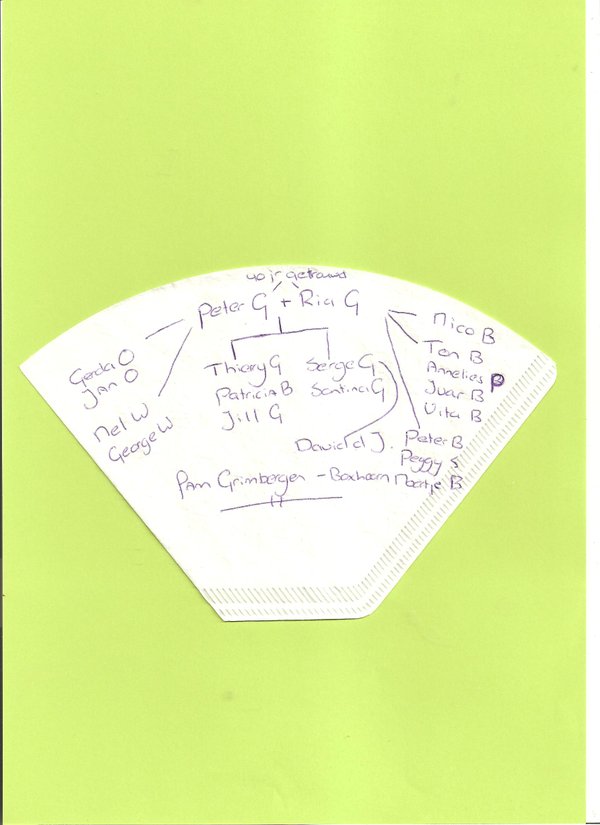 40 jr getrouwd
Peter G + Ria G
Gerda O
Jan O
Nel W
George W
Thierry G
Patricia B
Jill G
Serge G
Santina G
David J.
Nico B
Ton B
Annelies P
Juar B
Vita B
Peter B
Peggy S
Maartje B
Fam Grimbergen - Boxhoorn